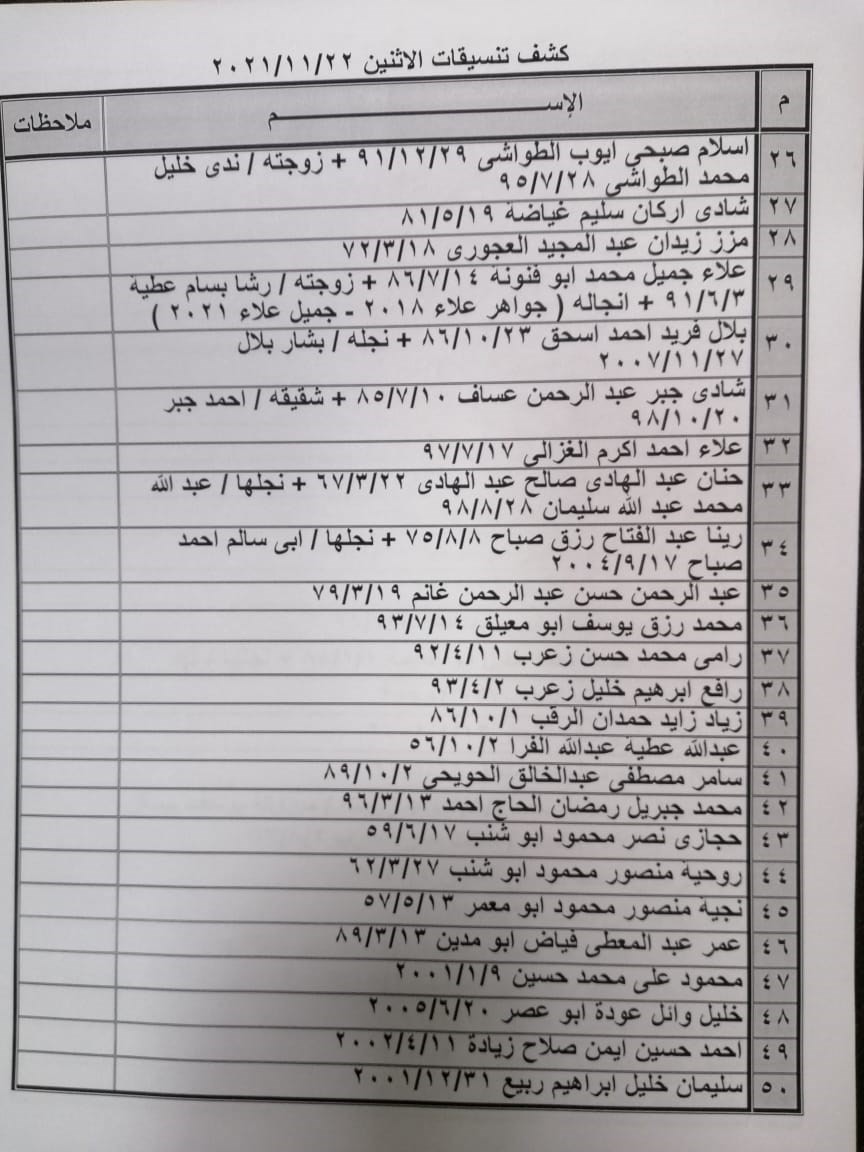 كشف تنسيقات الاثنين ٢٠٢١/١١/٢٢
م الإســـــــــم ملاحظات
٢٦ اسلام صبحى ايوب الطواشى ٩١/١٢/٢٩ + زوجته / ندى خليل
محمد الطواشى ٩٥/٧/٢٨
٢٧ شادى اركان سليم غياضة ٨١/٥/١٩
٢٨ مزز زيدان عبد المجيد العجورى ٧٢/٣/١٨
٢٩ علاء جميل محمد ابو فنونة ٨٦/٧/١٤ + زوجته / رشا بسام عطية
٩١/٦/٣ + انجاله ( جواهر علاء ٢٠١٨ - جميل علاء ٢٠٢١ )
٣٠ بلال فريد احمد اسحق ٨٦/١٠/٢٣ + نجله / بشار بلال
٢٠٠٧/١١/٢٧
٣١ شادى جبر عبد الرحمن عساف ٨٥/٧/١٠ + شقيقه / احمد جبر
٩٨/١٠/٢٠
٣٢ علاء احمد اكرم الغزالى ٩٧/٧/١٧
٣٣ حنان عبد الهادى صالح عبد الهادى ٦٧/٣/٢٢ + نجلها / عبد الله
محمد عبد الله سليمان ٩٨/٨/٢٨
٣٤ رينا عبد الفتاح رزق صباح ٧٥/٨/٨ + نجلها / ابى سالم احمد
صباح ٢٠٠٤/٩/١٧
٣٥ عبد الرحمن حسن عبد الرحمن غانم ٧٩/٣/١٩
٣٦ محمد رزق يوسف ابو معيلق ٩٣/٧/١٤
٣٧ رامى محمد حسن زعرب ٩٢/٤/١١
٣٨ رافع ابرهيم خليل زعرب ٩٣/٤/٢
٣٩ زياد زايد حمدان الرقب ٨٦/١٠/١
٤٠ عبدالله عطية عبدالله الفرا ٥٦/١٠/٢
٤١ سامر مصطفى عبدالخالق الحويحى ٨٩/١٠/٢
٤٢ محمد جبريل رمضان الحاج احمد ٩٦/٣/١٣
٤٣ حجازى نصر محمود ابو شنب ٥٩/٦/١٧
٤٤ روحية منصور محمود ابو شنب ٦٢/٣/٢٧
٤٥ نجية منصور محمود ابو معمر ٥٧/٥/١٣
٤٦ عمر عبد المعطى فياض ابو مدين ٨٩/٣/١٣
٤٧ محمود على محمد حسين ٢٠٠١/١/٩
٤٨ خليل وائل عودة ابو عصر ٢٠٠٥/٦/٢٠
٤٩ احمد حسين ايمن صلاح زيادة ٢٠٠٢/٤/١١
٥٠ سليمان خليل ابراهيم ربيع ٢٠٠١/١٢/٣١